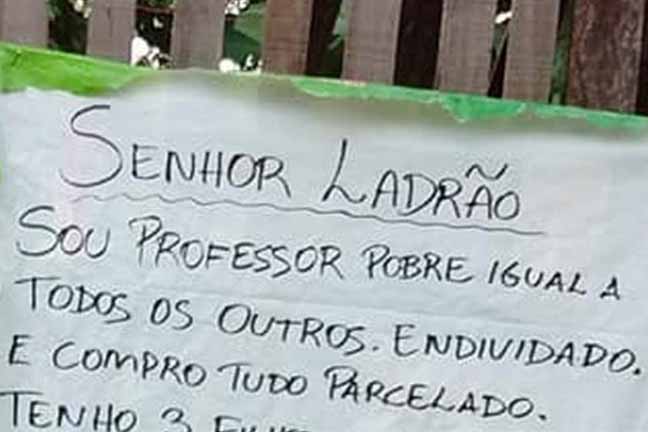 SENHOR LADRÃO
SOU PROFESSOR POBRE IGUAL A
TODOS OS OUTROS. ENDIVIDADO.
E COMPRO TUDO PARCELADO.
TENHO 3